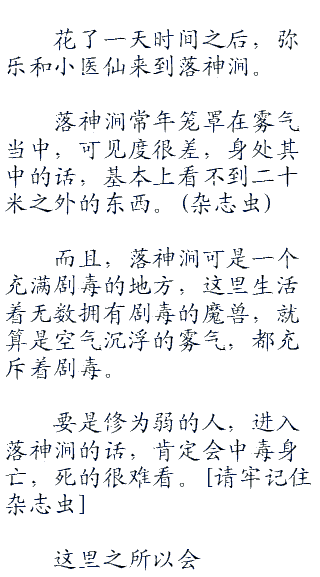 花了一天时间之后，弥
乐和小医仙来到落神涧。
落神涧常年笼罩在雾气
当中，可见度很差，身处其
中的话，基本上看不到二十
米之外的东西。(杂志虫)
而且，落神涧可是一个
充满剧毒的地方，这里生活
着无数拥有剧毒的魔兽，就
算是空气沉浮的雾气，都充
斥着剧毒。
要是修为弱的人，进入
落神涧的话，肯定会中毒身
亡，死的很难看。[请牢记住
杂志虫]
这里之所以会